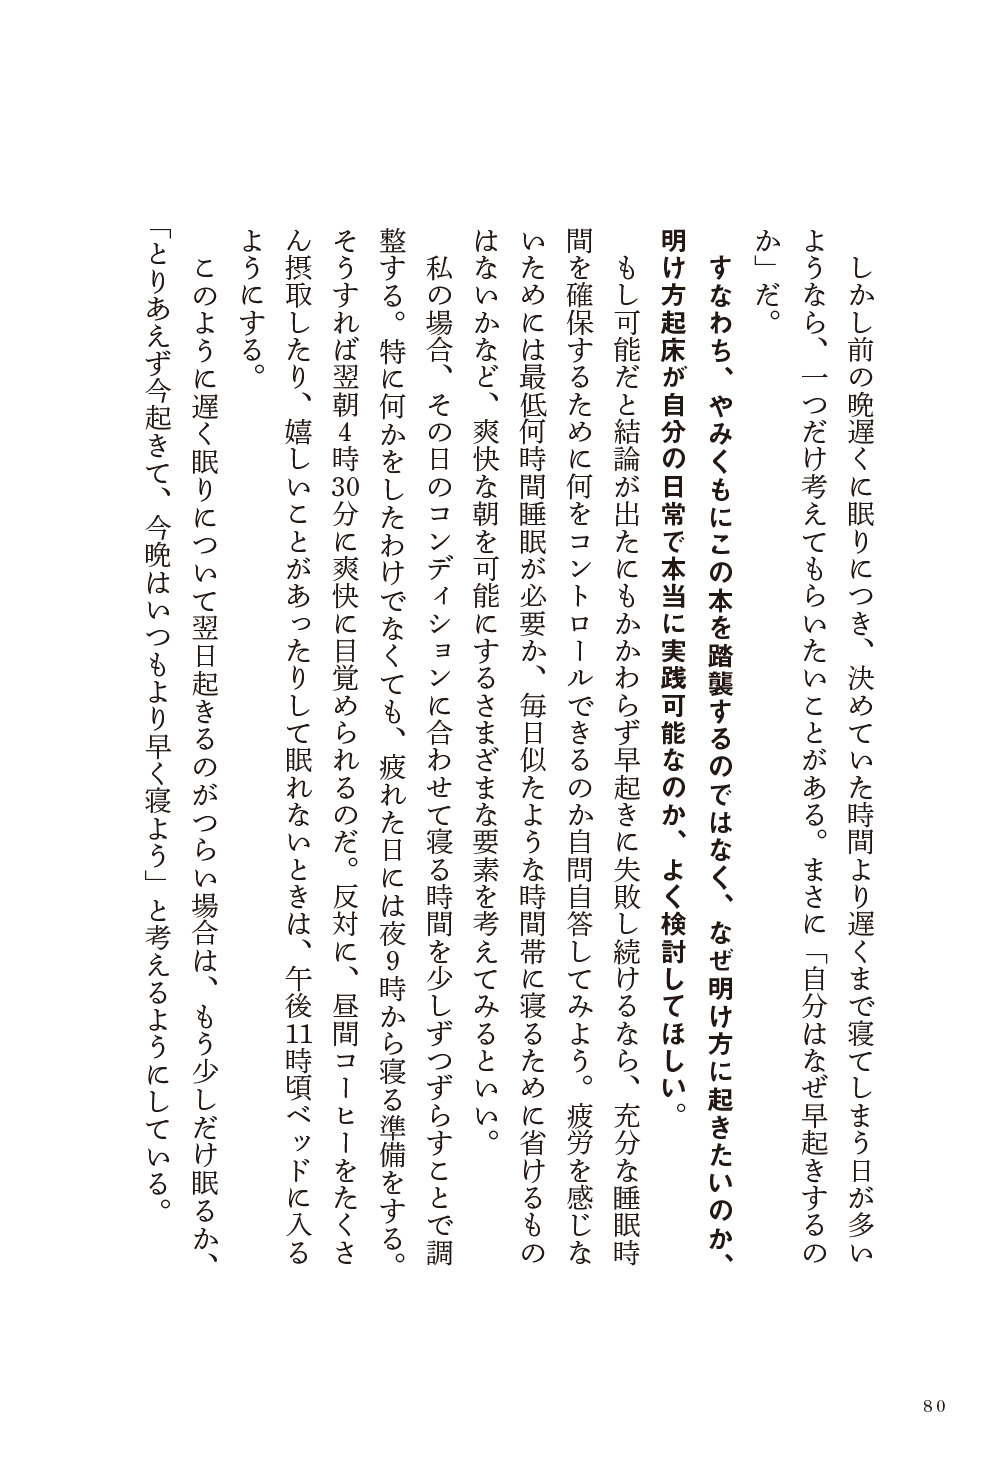 しかし前の晩遅くに眠りにつき、決めていた時間より遅くまで寝てしまう日が多い
ようなら、一つだけ考えてもらいたいことがある。まさに「自分はなぜ早起きするの
か」だ。
すなわち、やみくもにこの本を踏襲するのではなく、なぜ明け方に起きたいのか、
明け方起床が自分の日常で本当に実践可能なのか、よく検討してほしい。
もし可能だと結論が出たにもかかわらず早起きに失敗し続けるなら、充分な睡眠時
間を確保するために何をコントロールできるのか自問自答してみよう。疲労を感じな
いためには最低何時間睡眠が必要か、毎日似たような時間帯に寝るために省けるもの
はないかなど、爽快な朝を可能にするさまざまな要素を考えてみるといい。
私の場合、その日のコンディションに合わせて寝る時間を少しずつずらすことで調
整する。特に何かをしたわけでなくても、疲れた日には夜9時から寝る準備をする。
そうすれば翌朝4時30分に爽快に目覚められるのだ。反対に、昼間コーヒーをたくさ
ん摂取したり、嬉しいことがあったりして眠れないときは、午後11時頃ベッドに入る
ようにする。
このように遅く眠りについて翌日起きるのがつらい場合は、もう少しだけ眠るか、
「とりあえず今起きて、今晩はいつもより早く寝よう」と考えるようにしている。
80